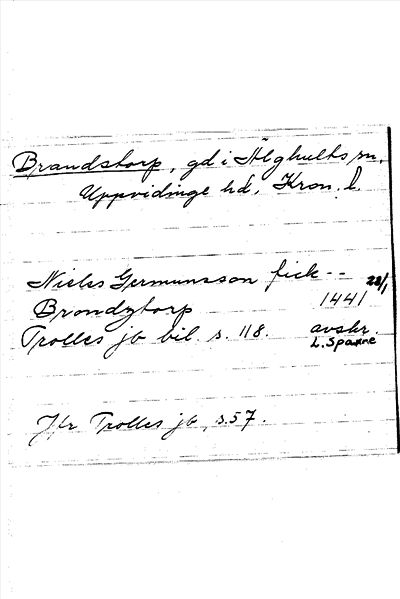 Brandstorp, gd i Älghults sn,
Uppvidinge hd, Kron. l.
Niclis Germunsson fick -- 23/1
Brondztorp 1441
Trolles jb bil. s. 118. avskr.
L. Sparre
Jfr Trolles jb, s. 57.